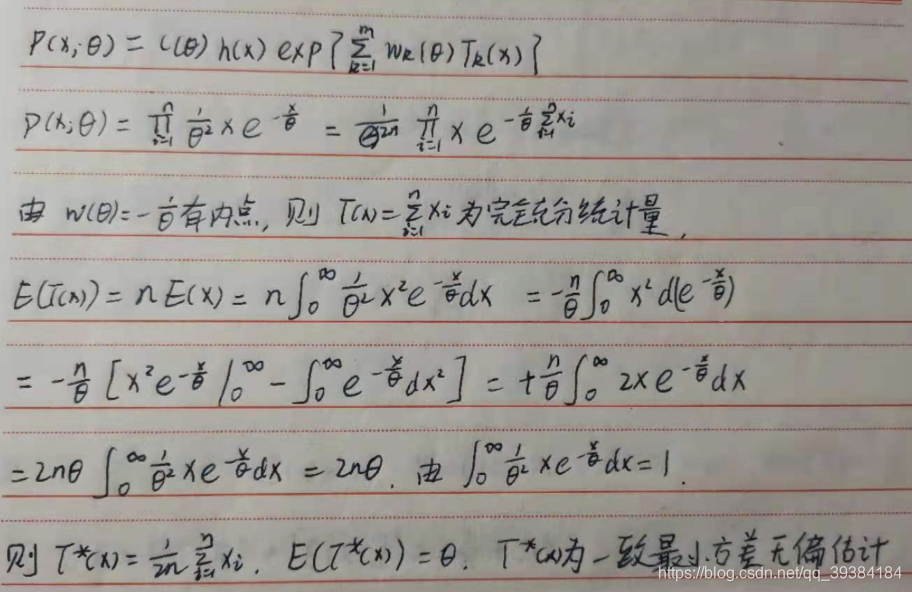 P(x;θ) = C(θ) h(x) exp{∑_{k=1}^{m} w_k(θ) T_k(x)}
P(x;θ) = ∏_{i=1}^{n} 1/θ² x e^{-x/θ} = 1/θ^{2n} ∏_{i=1}^{n} x e^{-1/θ ∑_{i=1}^{n} x_i}
由 w(θ)=-1/θ 有内点, 则 T(x)=∑_{i=1}^{n} x_i 为完全充分统计量,
E(T(x)) = n E(x) = n∫_0^∞ 1/θ² x² e^{-x/θ} dx = -n/θ ∫_0^∞ x² d(e^{-x/θ})
= -n/θ [x² e^{-x/θ} |_0^∞ - ∫_0^∞ e^{-x/θ} dx²] = +n/θ ∫_0^∞ 2x e^{-x/θ} dx
= 2nθ ∫_0^∞ 1/θ² x e^{-x/θ} dx = 2nθ. 由 ∫_0^∞ 1/θ² x e^{-x/θ} dx = 1.
则 T*(x) = 1/2n ∑_{i=1}^{n} x_i. E(T*(x)) = θ. T*(x)为一致最小方差无偏估计
https://blog.csdn.net/qq_39384184